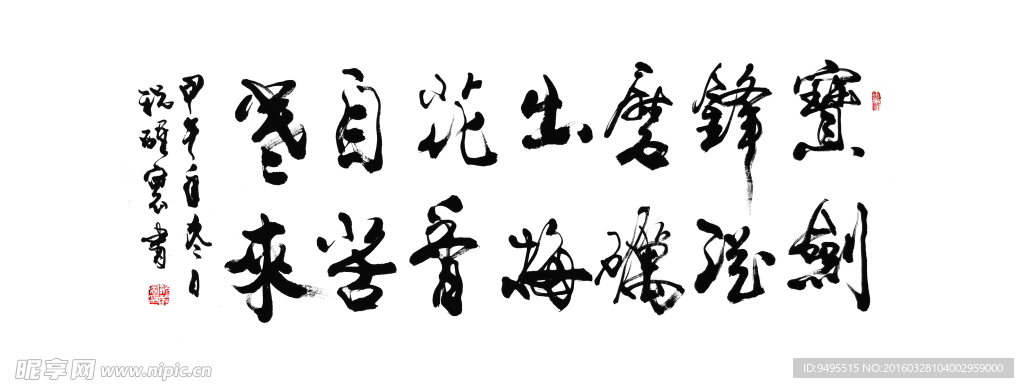 寶劍
鋒從
磨礪
出梅
花香
自苦
寒來
甲午年冬日
書
昵享网 www.nipic.cn
ID:9495515 NO:20160328104002959000